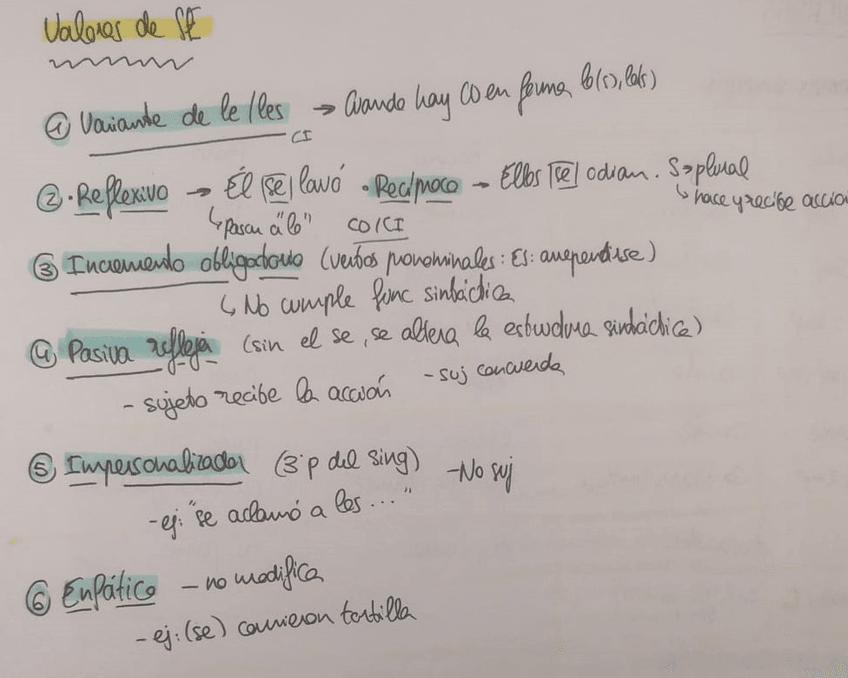 Valores de SE
① Variante de le/les → Cuando hay CD en forma lo(s), la(s)
CI
② · Reflexivo → Él se lavó · Recíproco → Ellos se odian. S → plural
↳ Pasar a "lo" CD/CI ↳ hace y recibe acción
③ Incremento obligatorio (verbos pronominales: Ej: arrepentirse)
↳ No cumple func sintáctica
④ Pasiva refleja (sin el se, se altera la estructura sintáctica)
- sujeto recibe la acción - suj concuerda
⑤ Impersonalizador (3ªp del sing) - No suj
- ej: "se aclamó a los ..."
⑥ Enfático - no modifica
- ej: (se) comieron tortilla